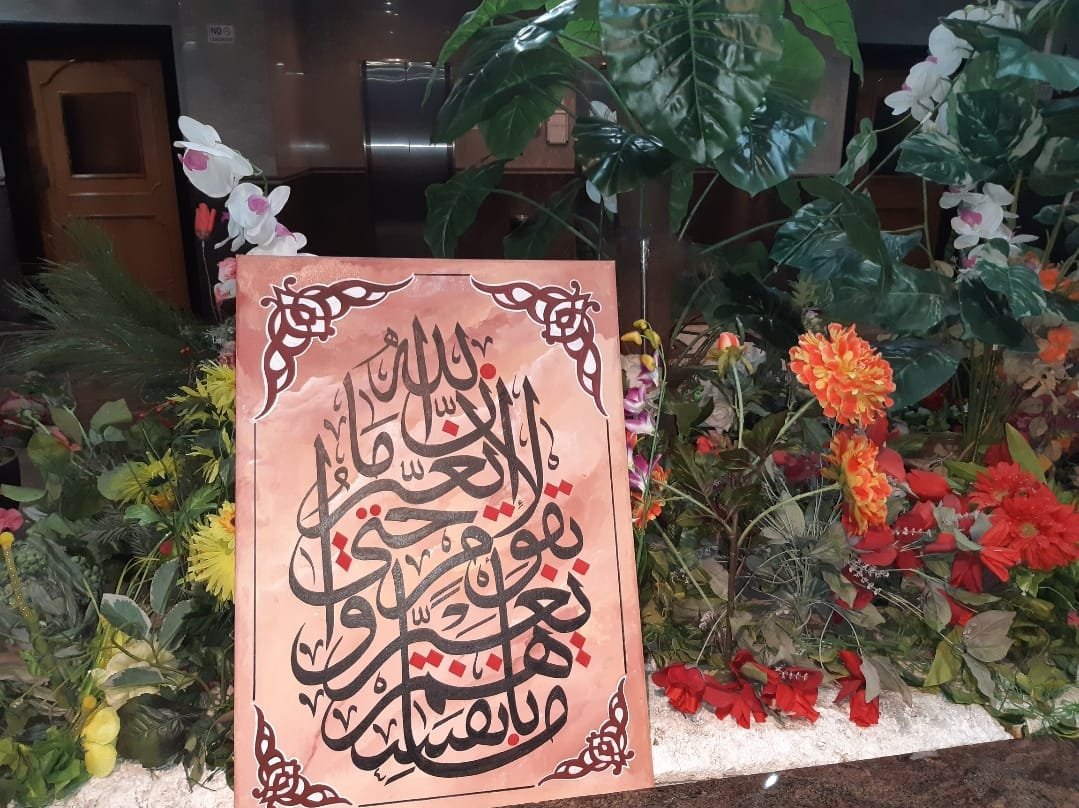 NO
إنّ الله
لا يغيّر ما
بقومٍ حتى
يغيّروا
ما بأنفسهم